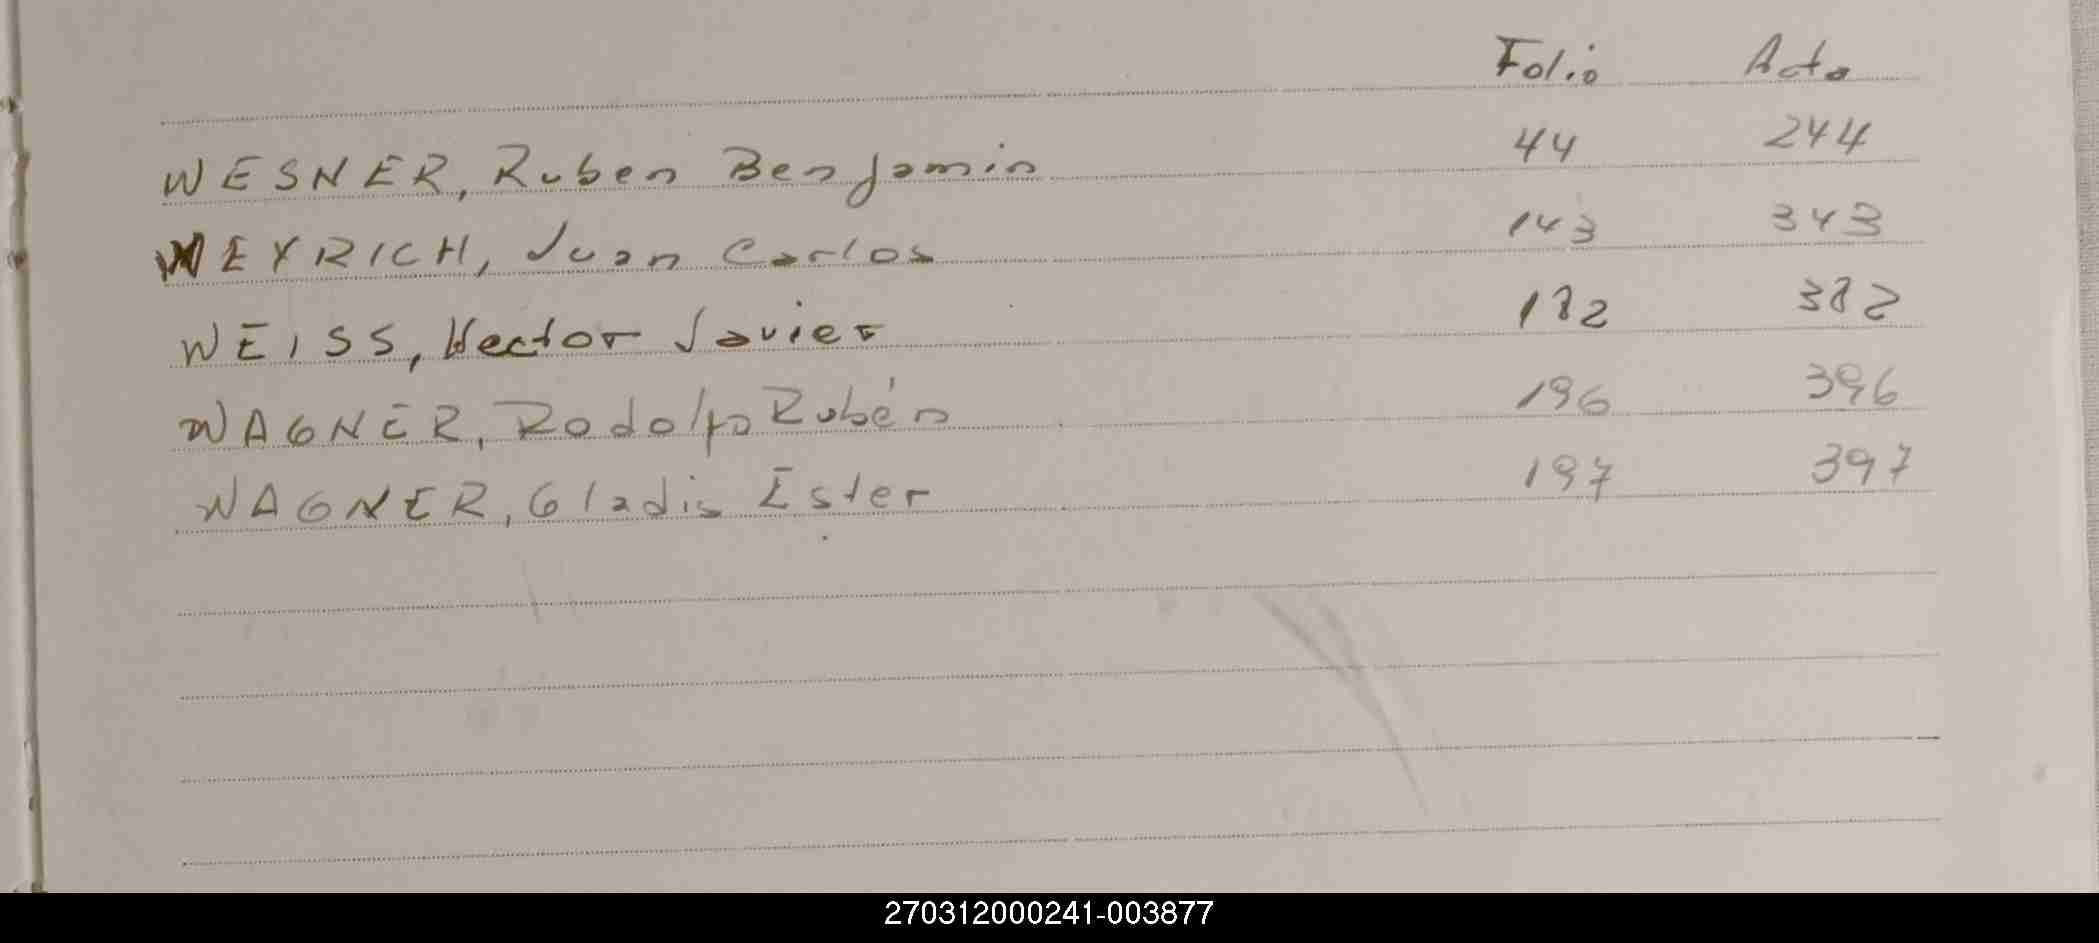 Folio Acta
WESNER, Ruben Benjamin 44 244
WEYRICH, Juan Carlos 143 343
WEISS, Hector Javier 182 382
WAGNER, Rodolfo Rubén 196 396
WAGNER, Gladis Ester 197 397
270312000241-003877